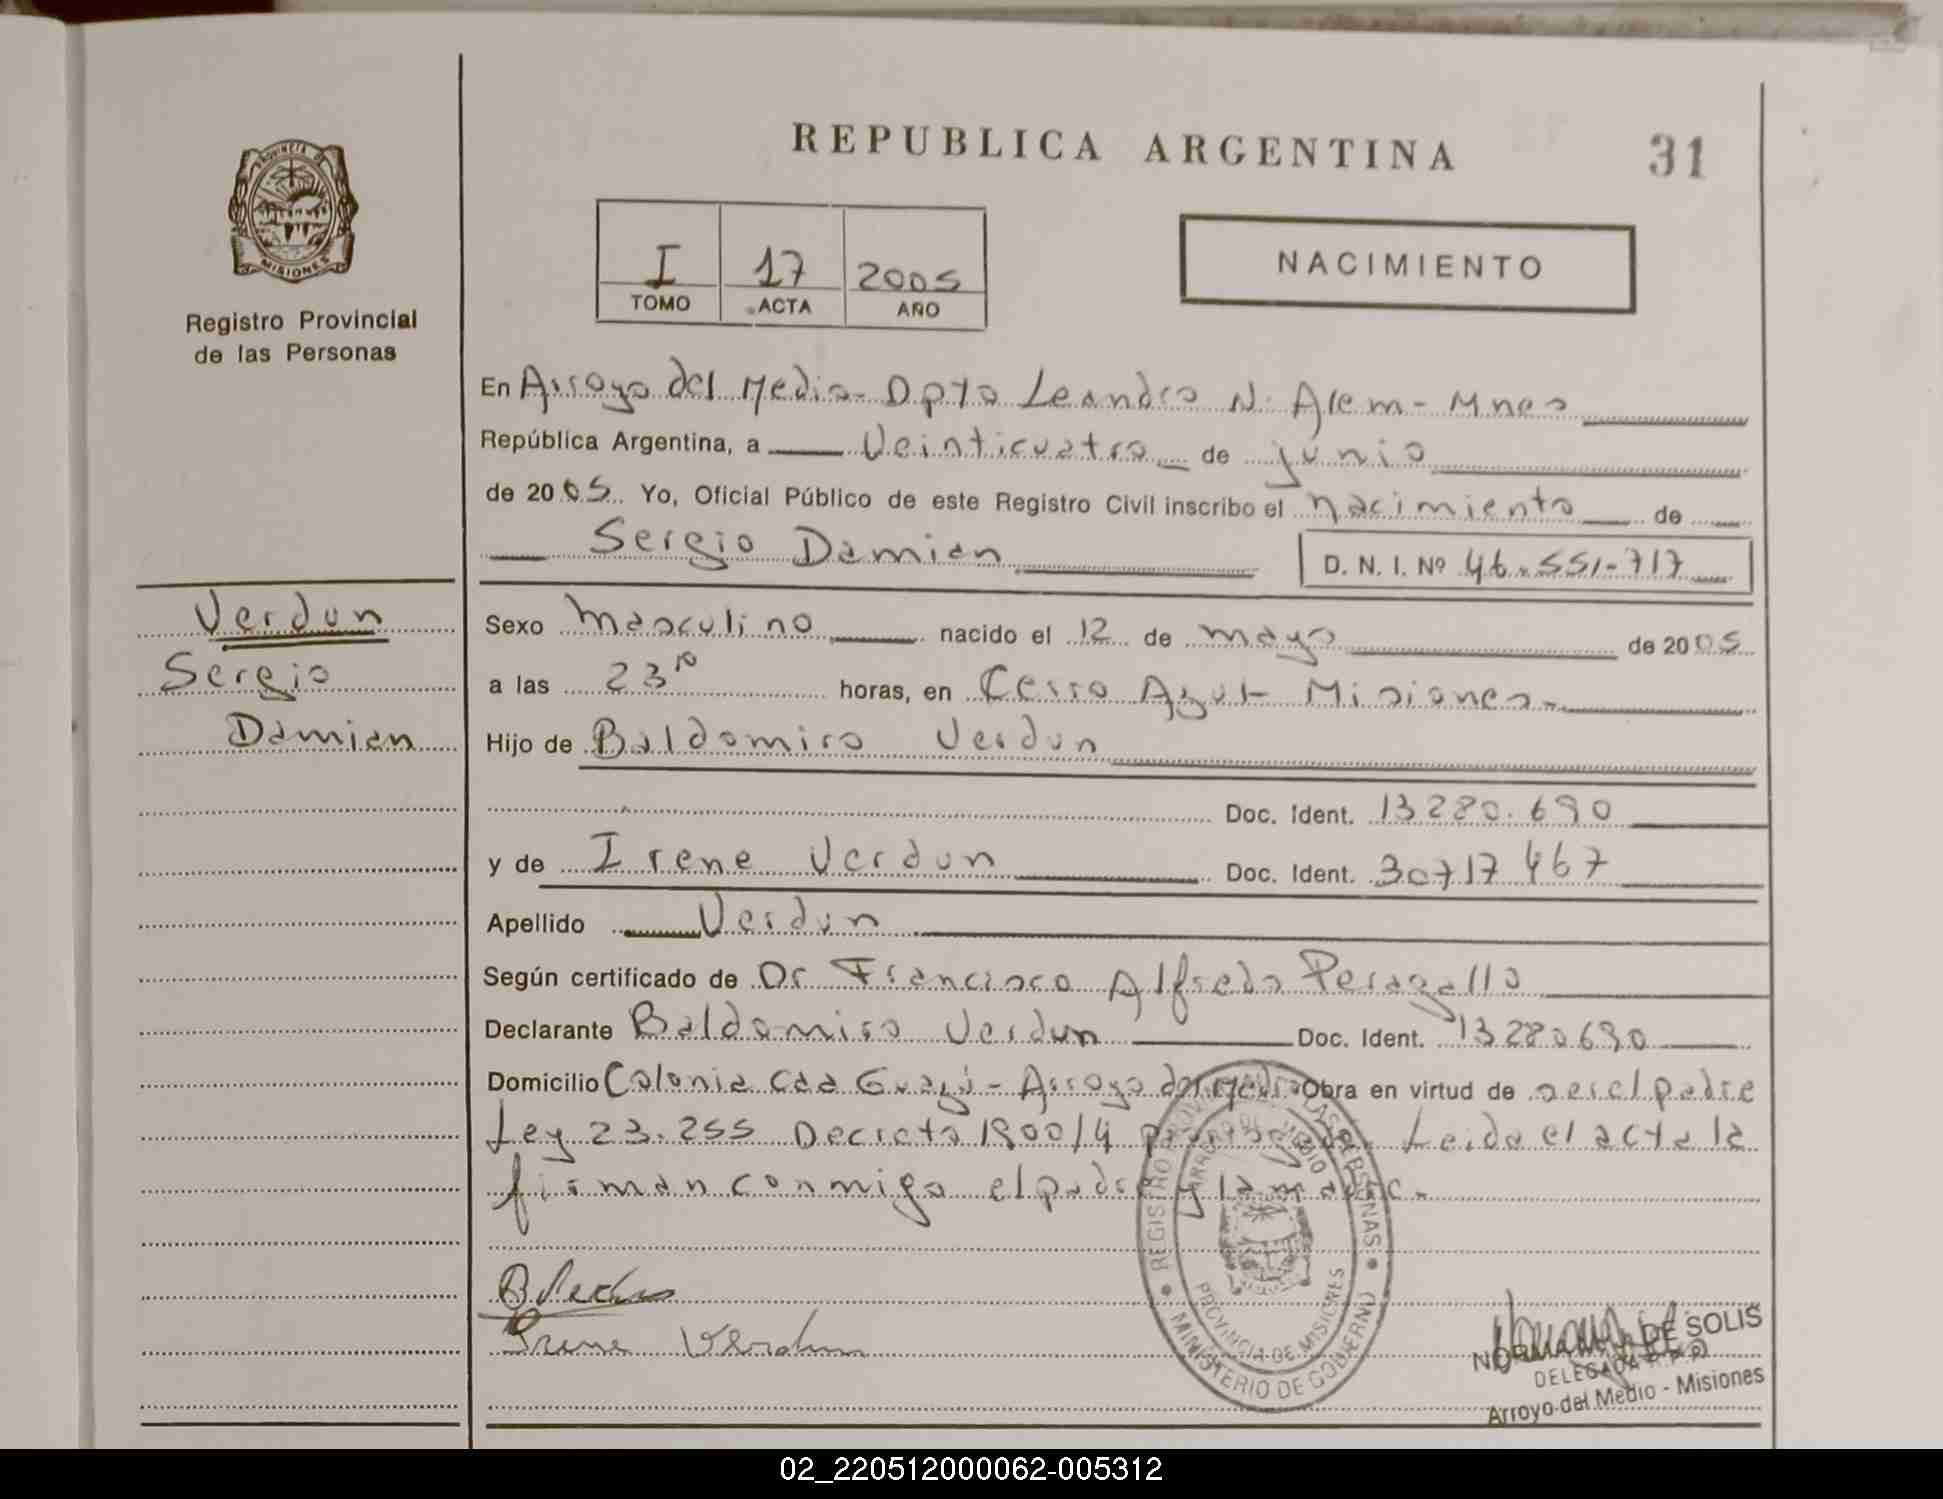 REPUBLICA ARGENTINA
31
PROVINCIA DE
MISIONES
Registro Provincial
de las Personas
I 17 2005
TOMO ACTA AÑO
NACIMIENTO
En Arroyo del Medio - Dpto Leandro N. Alem - Mnes
República Argentina, a Veinticuatro de junio
de 2005 Yo, Oficial Público de este Registro Civil inscribo el nacimiento de
Sergio Damian D. N. I. Nº 46.551-717
Verdun
Sergio
Damian
Sexo masculino nacido el 12 de mayo de 2005
a las 23 10 horas, en Cerro Azul - Misiones.
Hijo de Baldomiro Verdun
Doc. Ident. 13280.690
y de Irene Verdun Doc. Ident. 30717467
Apellido Verdun
Según certificado de Dr Francisco Alfredo Peragallo
Declarante Baldomiro Verdun Doc. Ident. 13280690
Domicilio Colonia Caa Guazú - Arroyo del Medio Obra en virtud de ser el padre
Ley 23.255 Decreto 1800/4 Leida el acta la
firman conmigo el padre y la madre.
B Verdun
Irene Verdun
REGISTRO PROVINCIAL DE LAS PERSONAS
ARROYO DEL MEDIO
PROVINCIA DE MISIONES
MINISTERIO DE GOBIERNO
DE SOLIS
DELEGADA R.P.P.
Arroyo del Medio - Misiones
02_220512000062-005312